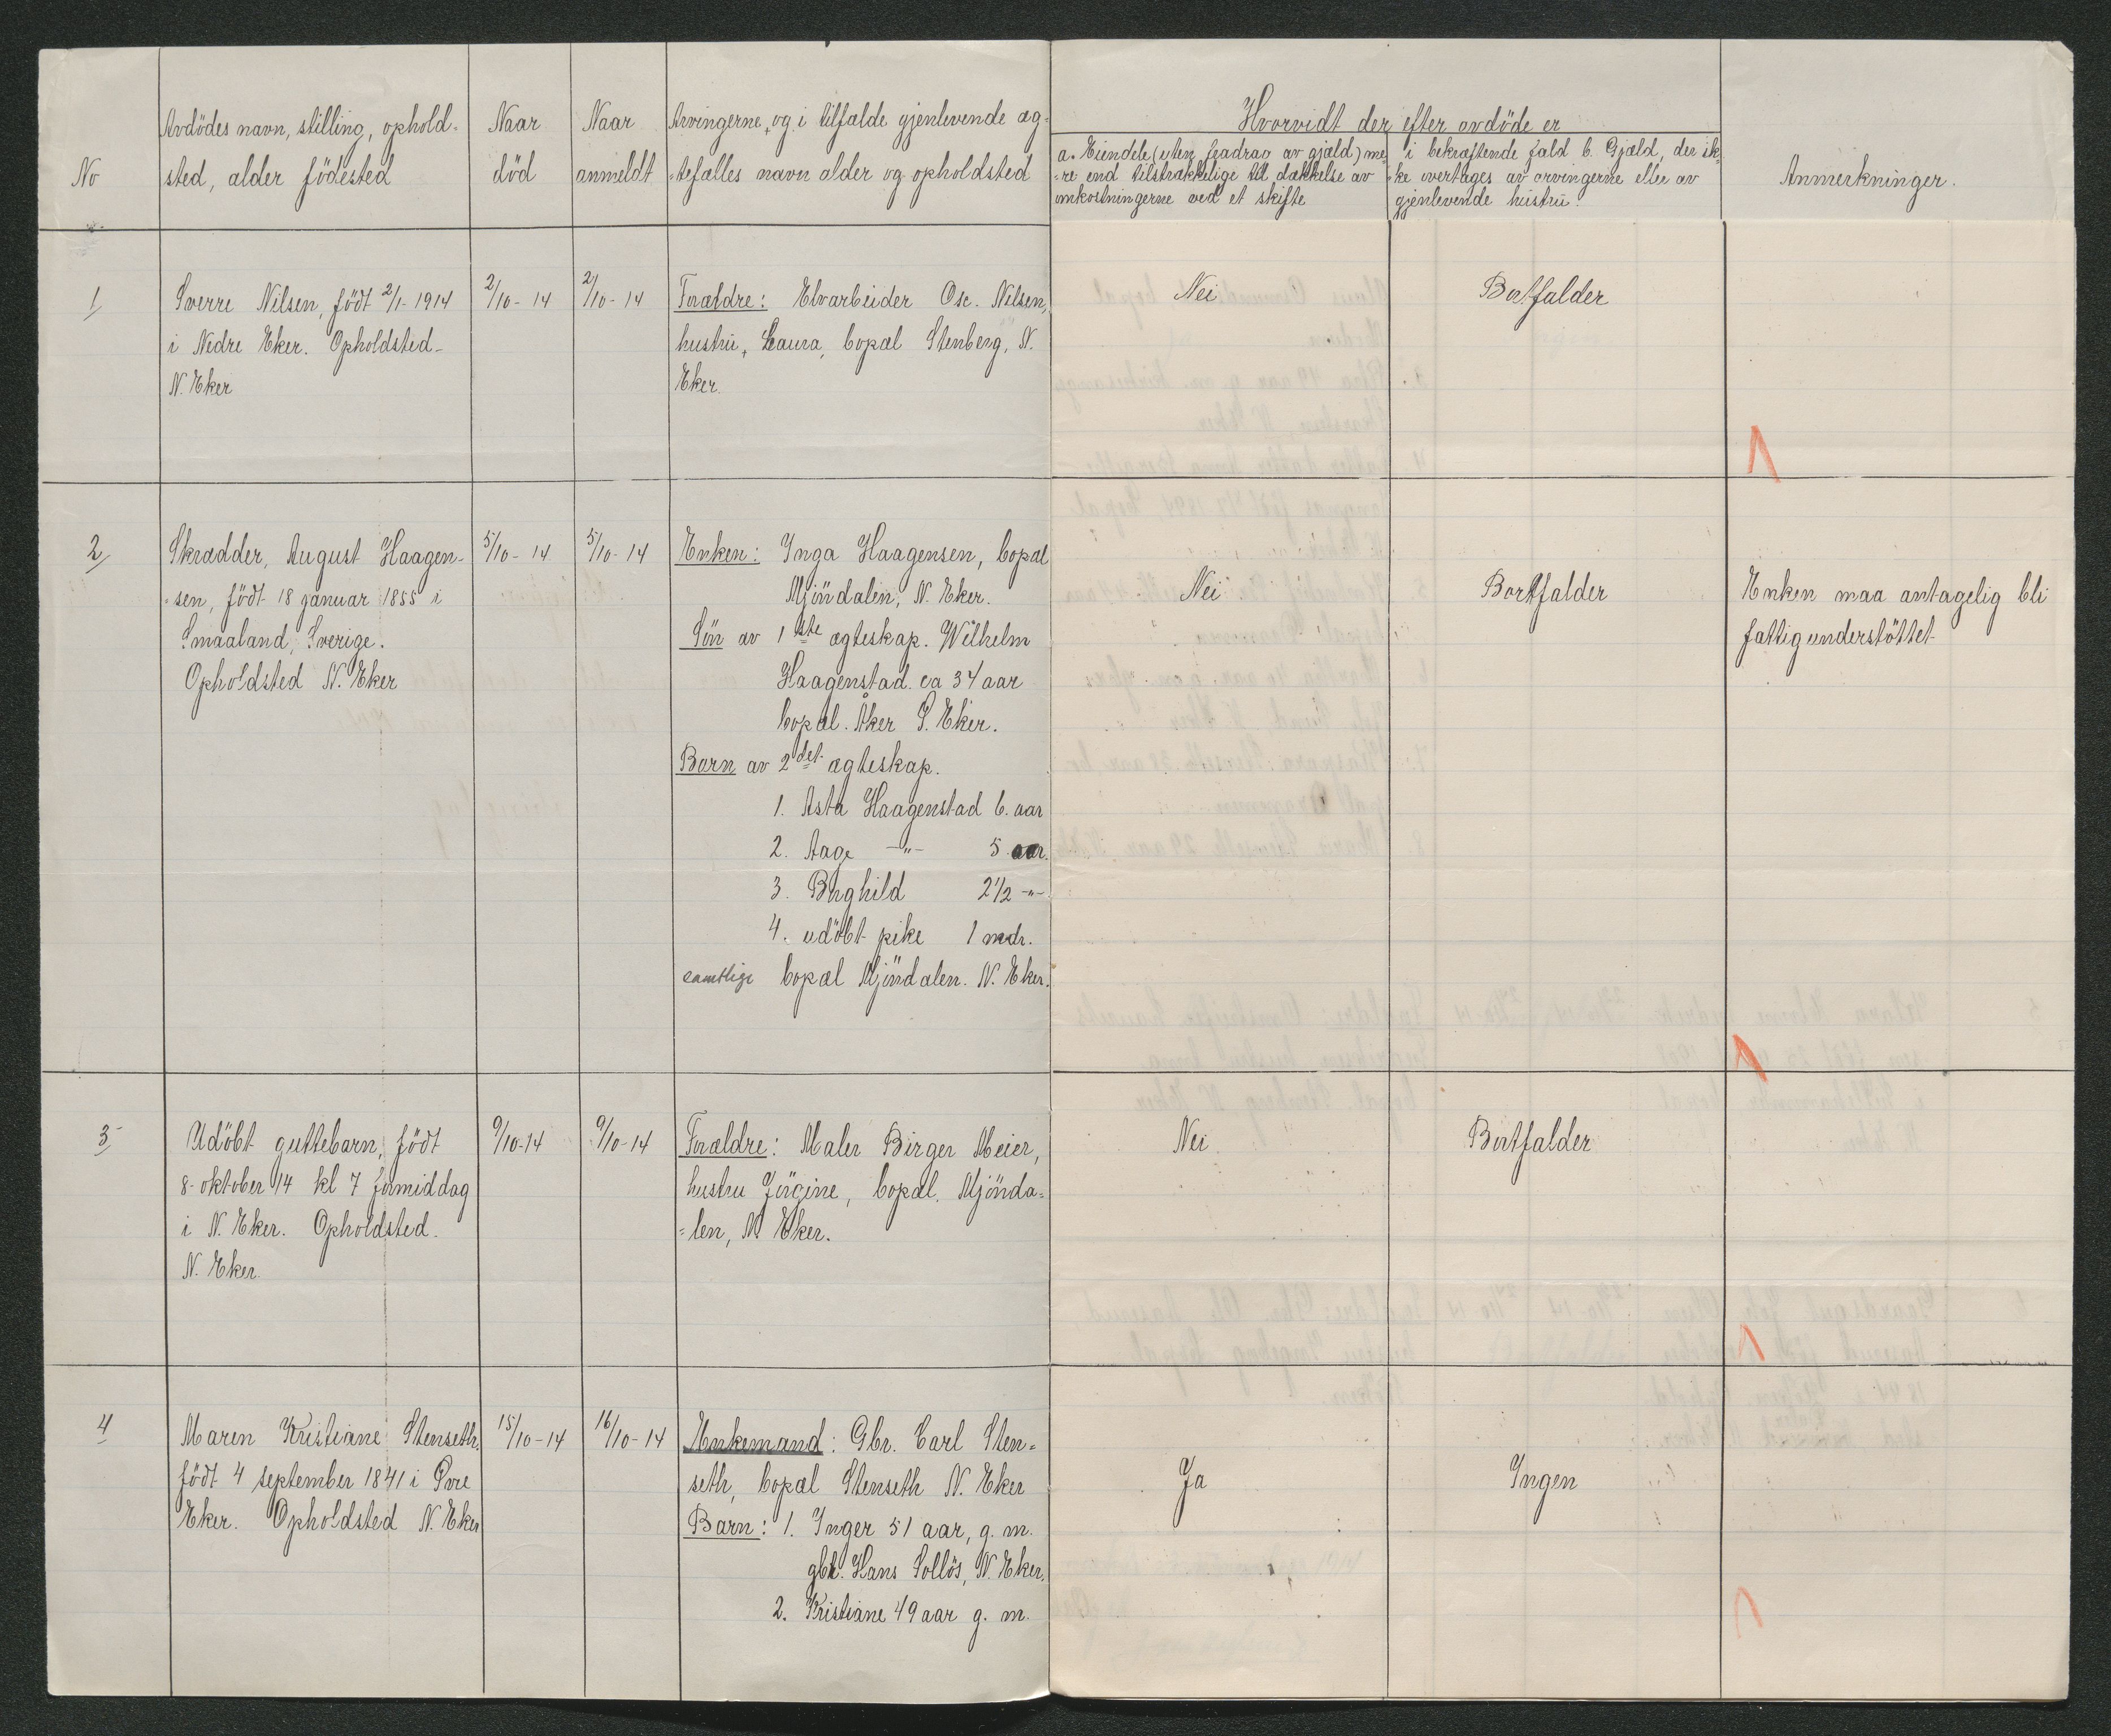 No
Avdödes navn, stilling, ophold-
sted, alder födested
Naar
död
Naar
anmeldt
Arvingerne, og i tilfalde gjenlevende æg-
tefælles navn alder og opholdsted
Hvorvidt der efter avdöde er
a. Eiendele (uten fradrag av gjæld) me-
re end tilstrækkelige til dækkelse av
omkostningerne ved et skifte
i bekræftende fald b. Gjæld, der ik-
ke overtages av arvingerne eller av
gjenlevende hustru.
Anmerkninger.
1
Sverre Nilsen, födt 2/1-1914
i Nedre Eker. Opholdsted-
N. Eker
2/10-14
2/10-14
Forældre: Elvarbeider Osc. Nilsen,
hustru, Laura, bopæl Stenberg, N.
Eker.
Nei
Bortfalder
2
Skrædder, August Haagen-
sen, födt 18 januar 1855 i
Smaaland, Sverige.
Opholdsted N. Eker
5/10-14
5/10-14
Enken: Inga Haagensen, bopæl
Mjöndalen, N. Eker.
Sön av 1ste ægteskap. Wilhelm
Haagenstad. ca 34 aar
bopæl. Åker Ö. Eker.
Barn av 2det ægteskap.
1. Asta Haagenstad 6. aar
2. Aage -"- 5 aar.
3. Borghild 2 1/2 -"-
4. udöbt pike 1 mdr.
samtlige bopæl Mjöndalen. N. Eker.
Nei
Bortfalder
Enken maa antagelig bli
fattigunderstöttet
3
Udöbt guttebarn, födt
8. oktober 14 kl 7 formiddag
i N. Eker. Opholdsted.
N. Eker.
9/10-14
9/10-14
Forældre: Maler Birger Meier,
hustru Jörgine, bopæl. Mjönda-
len, N. Eker.
Nei
Bortfalder
4
Maren Kristiane Stenseth,
födt 4 september 1841 i Övre
Eker. Opholdsted N. Eker
15/10-14
16/10-14
Enkemand: Gbr. Carl Sten-
seth, bopæl Stenseth N. Eker
Barn: 1. Inger 51 aar, g. m.
gbr. Hans Solløs, N. Eker.
2. Kristiane 49 aar g. m.
Ja
Ingen